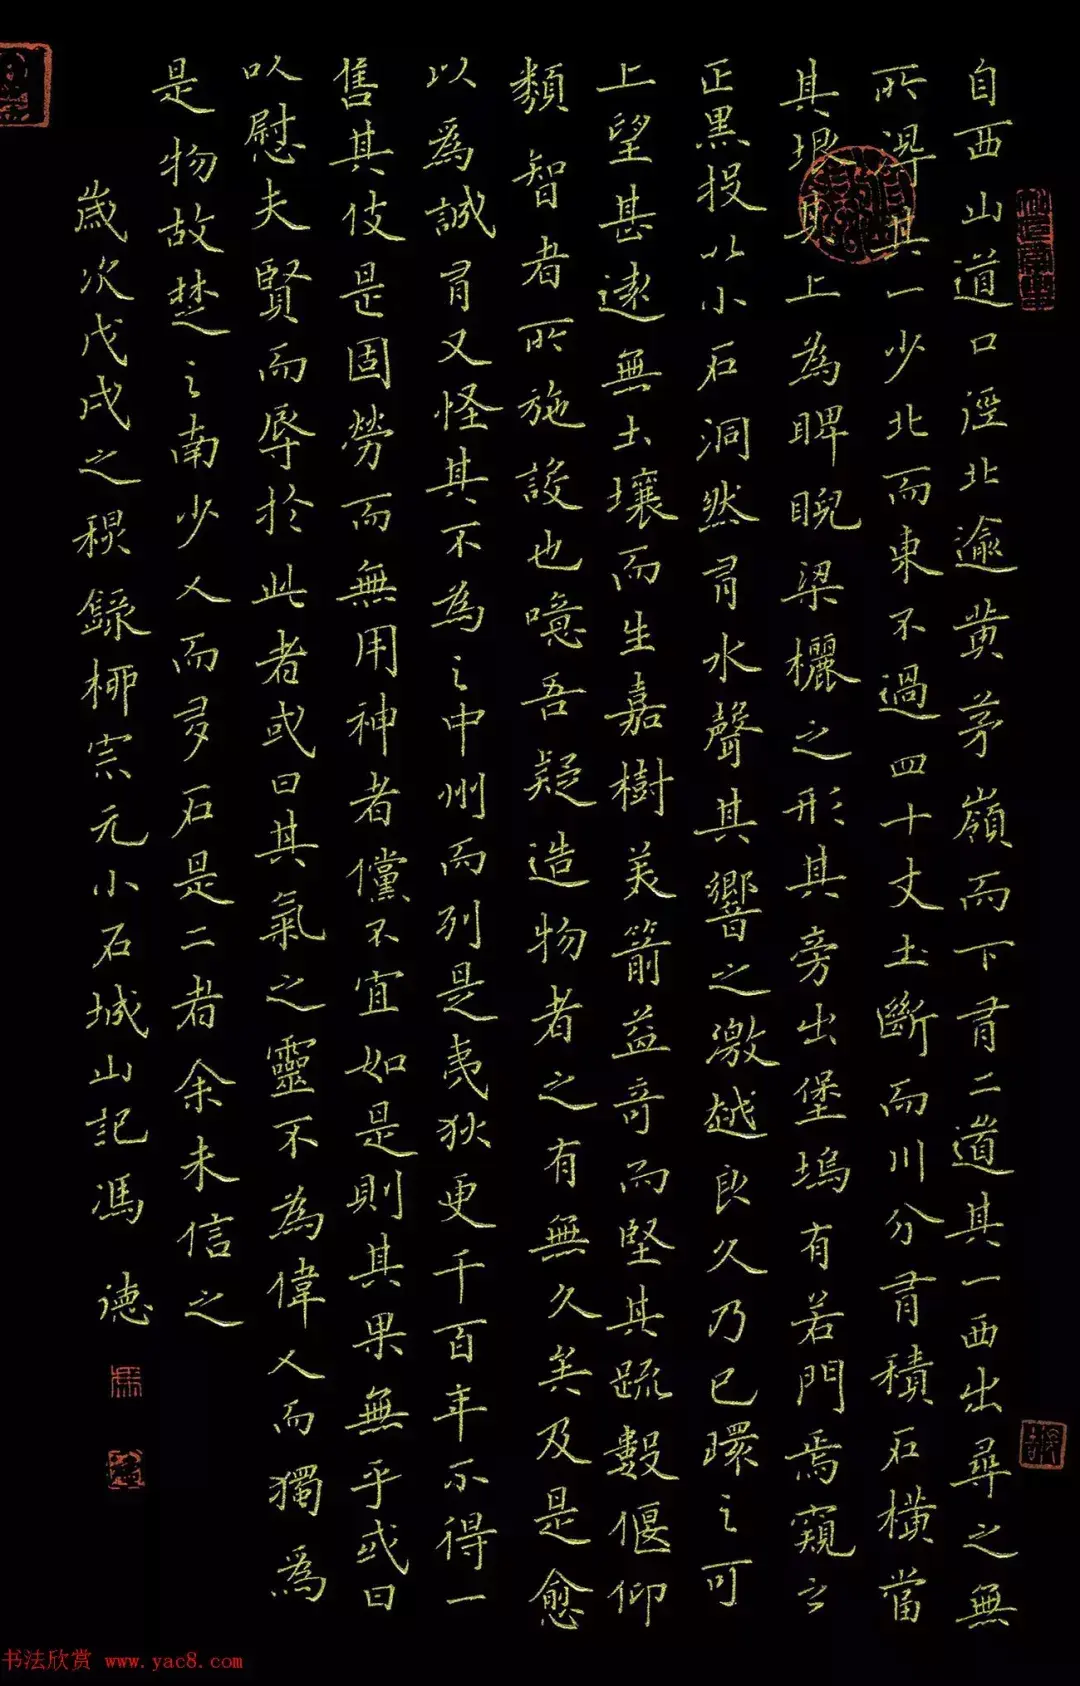 自西山道口徑北逾黄茅嶺而下有二道其一西出尋之無
所得其一少北而東不過四十丈土斷而川分有積石橫當
其垠其上為睥睨梁欐之形其旁出堡塢有若門焉窺之
正黑投以小石洞然有水聲其響之激越良久乃已環之可
上望甚遠無土壤而生嘉樹美箭益奇而堅其疏數偃仰
類智者所施設也噫吾疑造物者之有無久矣及是愈
以爲誠有又怪其不為之中州而列是夷狄更千百年不得一
售其伎是固勞而無用神者儻不宜如是則其果無乎或曰
以慰夫賢而辱於此者或曰其氣之靈不為偉人而獨爲
是物故楚之南少人而多石是二者余未信之
歲次戊戌之秋錄柳宗元小石城山記馮 德
书法欣赏 www.yac8.com